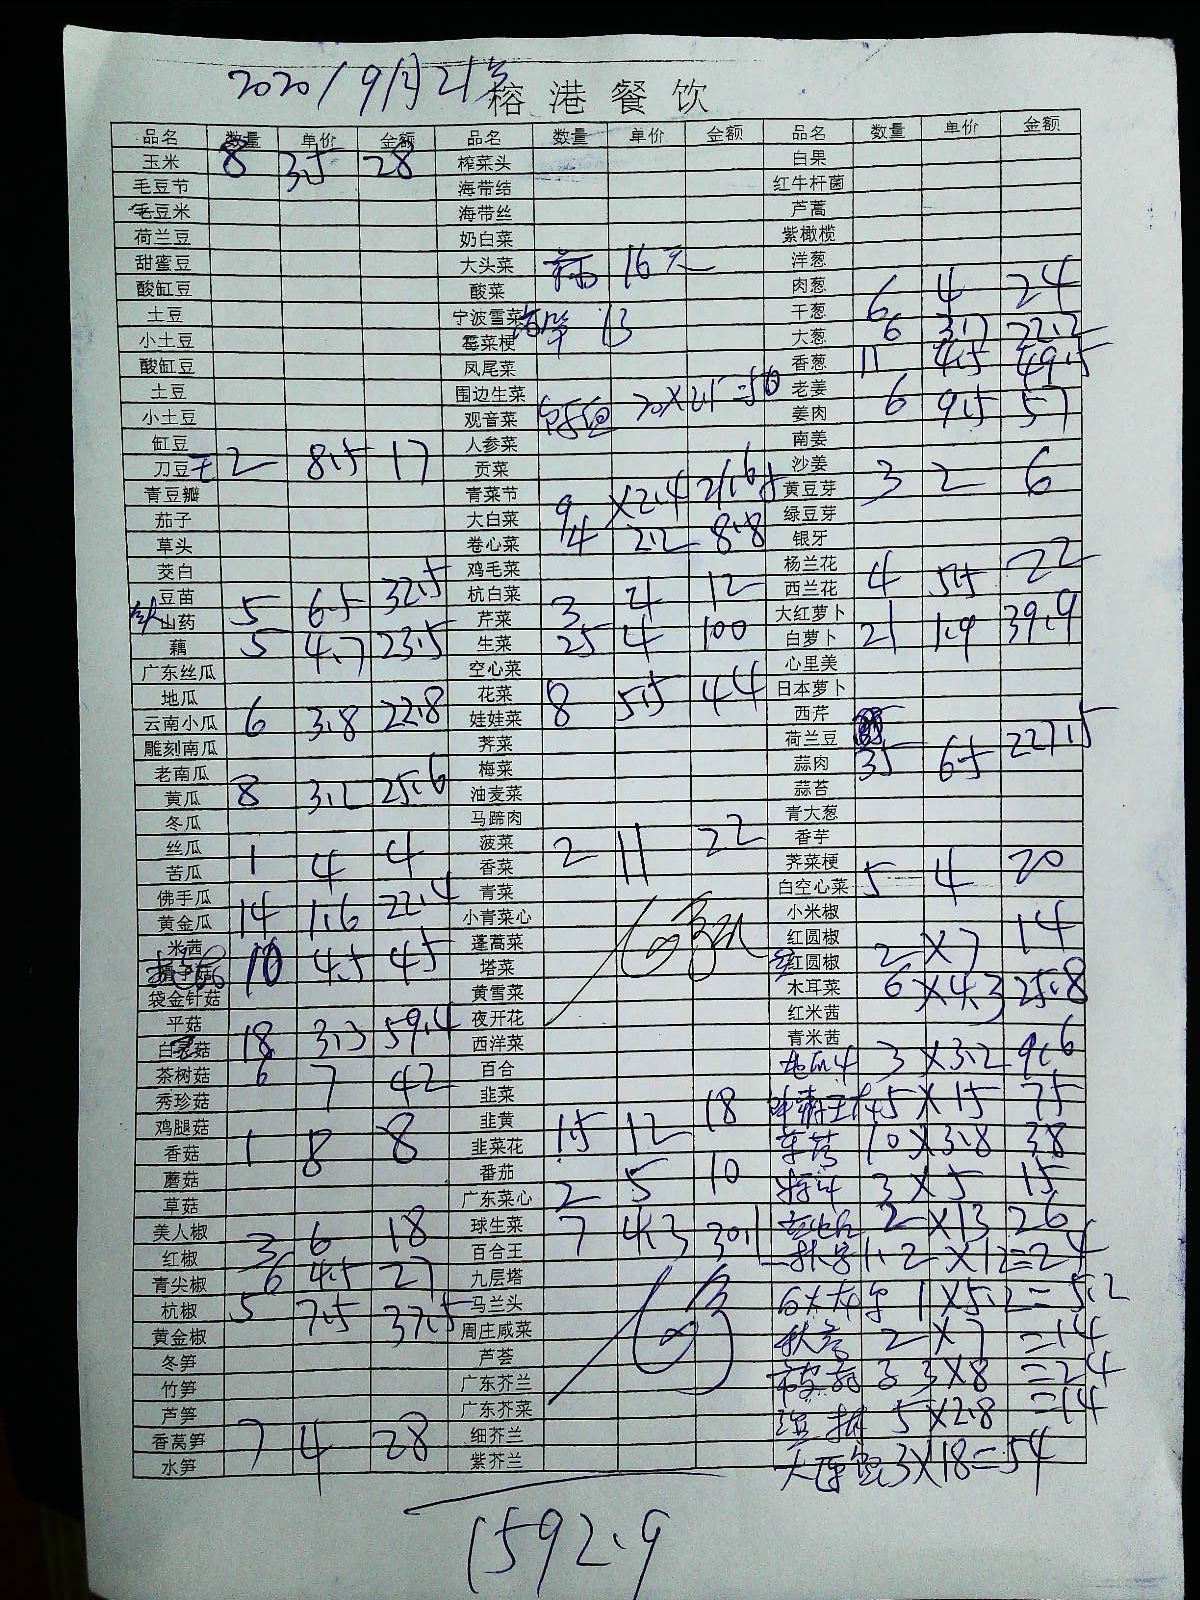 2020/9月21号
榕港餐饮
品名 数量 单价 金额 品名 数量 单价 金额 品名 数量 单价 金额
玉米 8 3.5 28 榨菜头 白果
毛豆节 海带结 红牛杆菌
毛豆米 海带丝 芦蒿
荷兰豆 奶白菜 紫橄榄
甜蜜豆 大头菜 16元 洋葱
酸缸豆 酸菜 肉葱 6 4 24
土豆 宁波雪菜 13 干葱 6 3.7 22.2
小土豆 霉菜梗 大葱 11 4.5 49.5
酸缸豆 凤尾菜 香葱
土豆 围边生菜 20×2.5=50 老姜 6 9.5 57
小土豆 观音菜 姜肉
缸豆 2 8.5 17 人参菜 南姜
刀豆 贡菜 沙姜 3 2 6
青豆瓣 青菜节 9 ×2.4 21.6 黄豆芽
茄子 大白菜 4 2.2 8.8 绿豆芽
草头 卷心菜 银牙
茭白 鸡毛菜 杨兰花 4 5.5 22
豆苗 5 6.5 32.5 杭白菜 3 4 12 西兰花
山药 芹菜 大红萝卜
藕 5 4.7 23.5 生菜 25 4 100 白萝卜 21 1.9 39.9
广东丝瓜 空心菜 心里美
地瓜 花菜 8 5.5 44 日本萝卜
云南小瓜 6 3.8 22.8 娃娃菜 西芹
雕刻南瓜 荠菜 荷兰豆 35 6.5 227.5
老南瓜 梅菜 蒜肉
黄瓜 8 3.2 25.6 油麦菜 蒜苔
冬瓜 马蹄肉 青大葱
丝瓜 1 4 4 菠菜 2 11 22 香芋
苦瓜 香菜 荠菜梗 5 4 20
佛手瓜 青菜 白空心菜
黄金瓜 14 1.6 22.4 小青菜心 小米椒
米茜 蓬蒿菜 红圆椒 2×7 14
10 4.5 45 塔菜 红圆椒
袋金针菇 黄雪菜 木耳菜 6×4.3 25.8
平菇 夜开花 红米茜
白灵菇 18 3.3 59.4 西洋菜 青米茜
茶树菇 6 7 42 百合 3×3.2 9.6
秀珍菇 韭菜 5×15 75
鸡腿菇 韭黄 1.5 12 18
香菇 1 8 8 韭菜花 10×3.8 38
蘑菇 番茄 3×5 15
草菇 广东菜心 2 5 10
美人椒 3 6 18 球生菜 7 4.3 30.1 2×13 26
红椒 百合王 2×12=24
青尖椒 6 4.5 27 九层塔 1×5.2=5.2
杭椒 5 7.5 37.5 马兰头
黄金椒 周庄咸菜 2×7=14
冬笋 芦荟
竹笋 广东芥兰 3×8=24
芦笋 广东芥菜 5×2.8=14
香莴笋 7 4 28 细芥兰
水笋 紫芥兰 3×18=54
1592.9